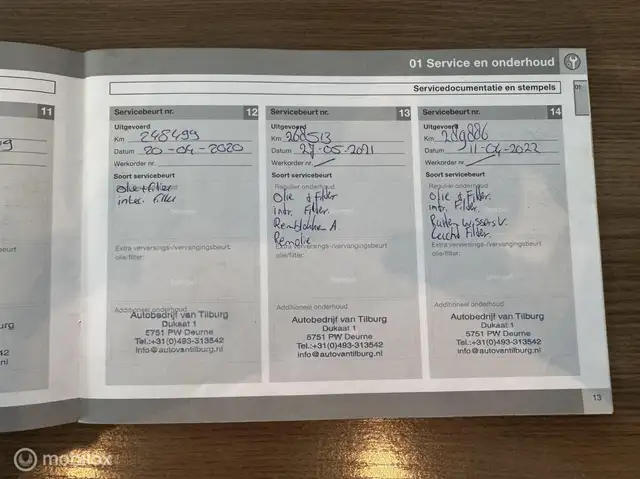 01 Service en onderhoud
Servicedocumentatie en stempels
01
11
Servicebeurt nr. 12
Uitgevoerd
Km 248499
Datum 20-04-2020
Werkorder nr.
Soort servicebeurt
Olie + Filter
inter. Filter
Extra verversings-/vervangingsbeurt
olie/filter:
Additioneel onderhoud
Autobedrijf van Tilburg
Dukaat 1
5751 PW Deurne
Tel.:+31(0)493-313542
info@autovantilburg.nl
Servicebeurt nr. 13
Uitgevoerd
Km 268513
Datum 27-05-2021
Werkorder nr.
Soort servicebeurt
Regulier onderhoud
Olie & Filder
intr. Filder.
Remblokken A
Remolie
Extra verversings-/vervangingsbeurt
olie/filter:
Additioneel onderhoud
Autobedrijf van Tilburg
Dukaat 1
5751 PW Deurne
Tel.:+31(0)493-313542
info@autovantilburg.nl
Servicebeurt nr. 14
Uitgevoerd
Km
Datum 11-04-2022
Werkorder nr.
Soort servicebeurt
Regulier onderhoud
Olie & Filder.
intr. Filder.
Ruiten wissers V.
Lucht Filder.
Extra verversings-/vervangingsbeurt
olie/filter:
Additioneel onderhoud
Autobedrijf van Tilburg
Dukaat 1
5751 PW Deurne
Tel.:+31(0)493-313542
info@autovantilburg.nl
13